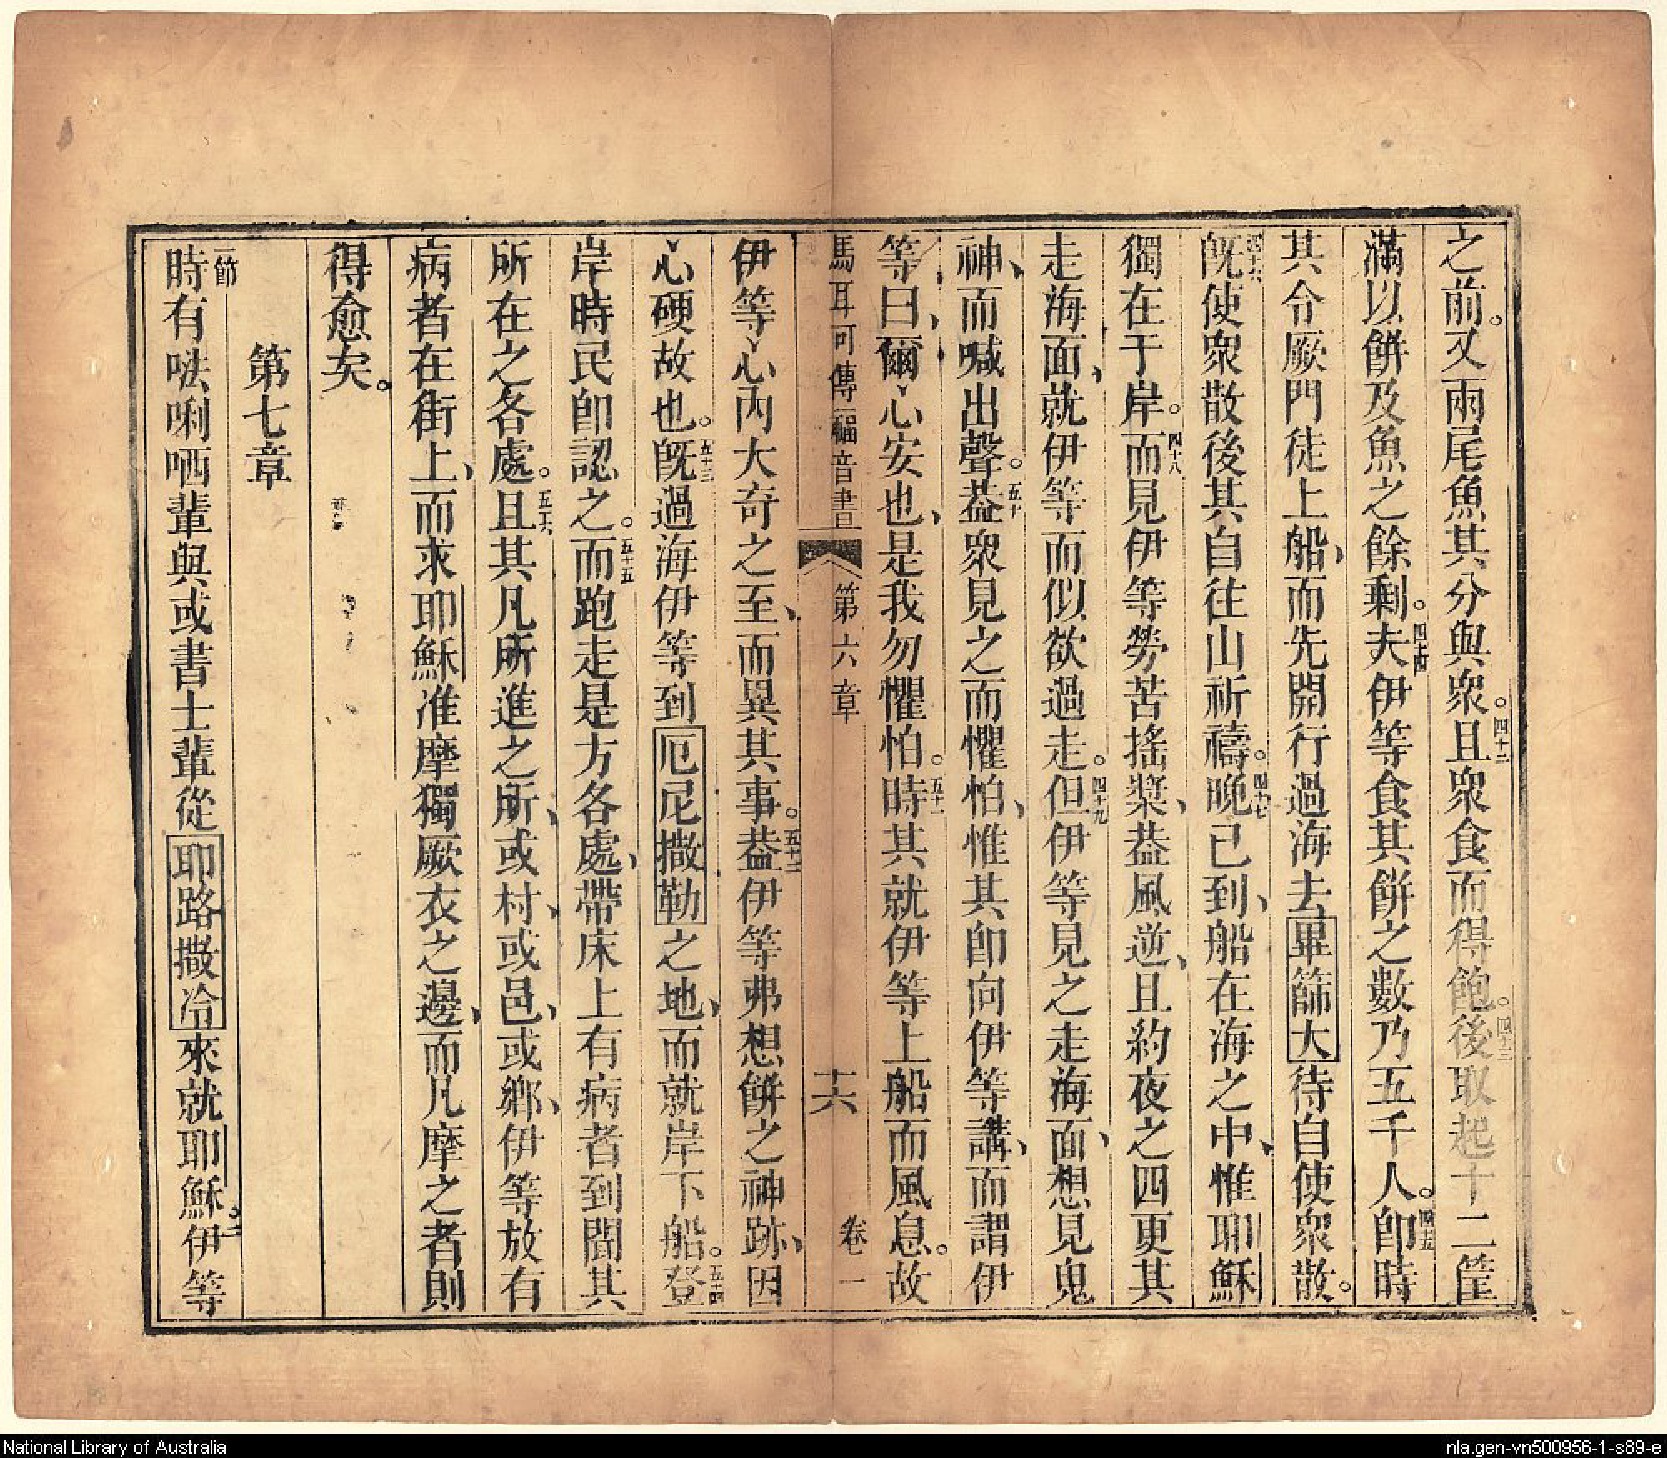 之前。又兩尾魚其分與衆。四十二且衆食而得飽。四十三後取起十二筐
滿以餅及魚之餘剩。四十四夫伊等食其餅之數乃五千人。四十五卽時
其令厥門徒上船、而先開行過海去畢篩大待自使衆散。
四十六旣使衆散後其自往山祈禱。四十七晚已到、船在海之中、惟耶穌
獨在于岸。四十八而見伊等勞苦搖槳、葢風逆、且約夜之四更其
走海面、就伊等而似欲過走。四十九但伊等見之走海面、想見鬼
神、而喊出聲。五十葢衆見之而懼怕、惟其卽向伊等講、而謂伊
等曰、爾心安也、是我勿懼怕。五十一時其就伊等上船而風息。故
馬耳可傳福音書 第六章 十六 卷一
伊等心內大奇之至、而異其事。五十二葢伊等弗想餅之神跡、因
心硬故也。五十三旣過海伊等到厄尼撒勒之地、而就岸下船。五十四登
岸時民卽認之。五十五而跑走是方各處、帶床上有病者到聞其
所在之各處。五十六且其凡所進之所、或村、或邑、或鄉、伊等放有
病者在街上、而求耶穌准摩獨厥衣之邊、而凡摩之者則
得愈矣。
第七章
一節時有𠵽唎哂輩與或書士輩從耶路撒冷來就耶穌。二伊等
National Library of Australia
nla.gen-vn500956-1-s89-e